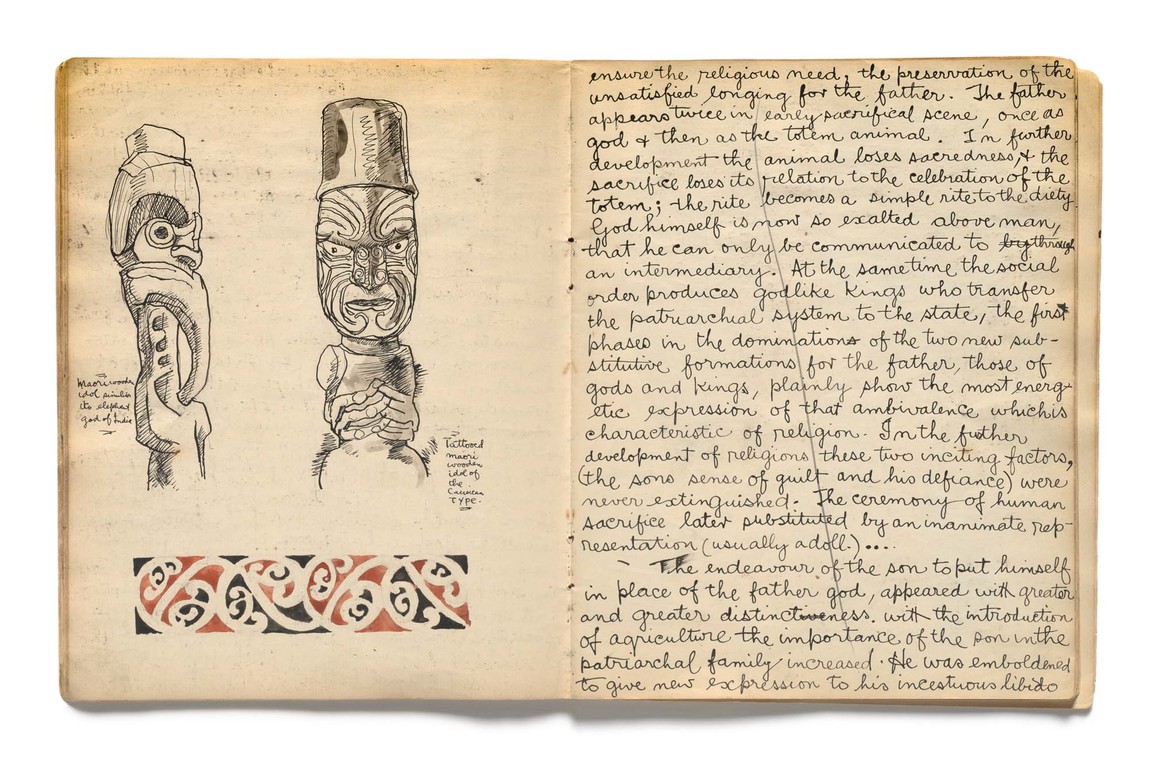 Maori wooden
idol similar
to elephant
god of India
Tattooed
maori
wooden
idol of
the
TYPE.
ensure the religious need, the preservation of the
unsatisfied longing for the father. The father
appears twice in early sacrificial scene, once as
god & then as the totem animal. In further
development the animal loses sacredness, & the
sacrifice loses its relation to the celebration of the
totem; the rite becomes a simple rite to the diety.
God himself is now so exalted above man,
that he can only be communicated to by through
an intermediary. At the same time the social
order produces godlike Kings who transfer
the patriarchial system to the state, the first
phases in the dominations of the two new sub-
stitutive formations for the father, those of
gods and kings, plainly show the most energ-
etic expression of that ambivalence which is
characteristic of religion. In the further
development of religions these two inciting factors,
(the sons sense of guilt and his defiance) were
never extinguished. The ceremony of human
sacrifice later substituted by an inanimate rep-
resentation (usually a doll.)....
The endeavour of the son to put himself
in place of the father god, appeared with greater
and greater distinctiveness. with the introduction
of agriculture the importance of the son in the
patriarchal family increased. He was emboldened
to give new expression to his incestuous libido